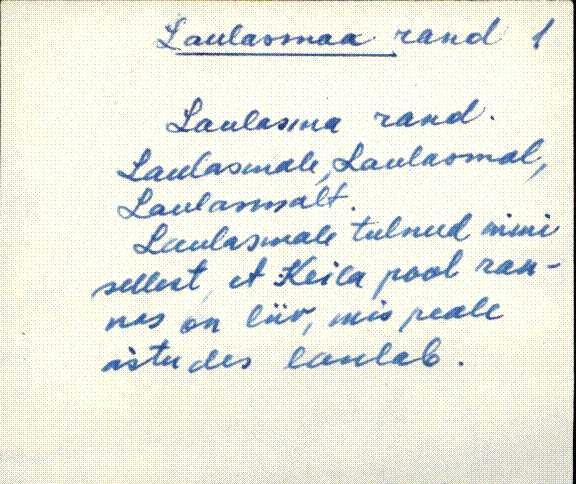 Laulasmaa rand 1
Laulasma rand.
Laulasmale, Laulasmal,
Laulasmalt.
Laulasmale tulnud nimi
sellest, et Keila pool ran-
nas on liiv, mis peale
astudes laulab.